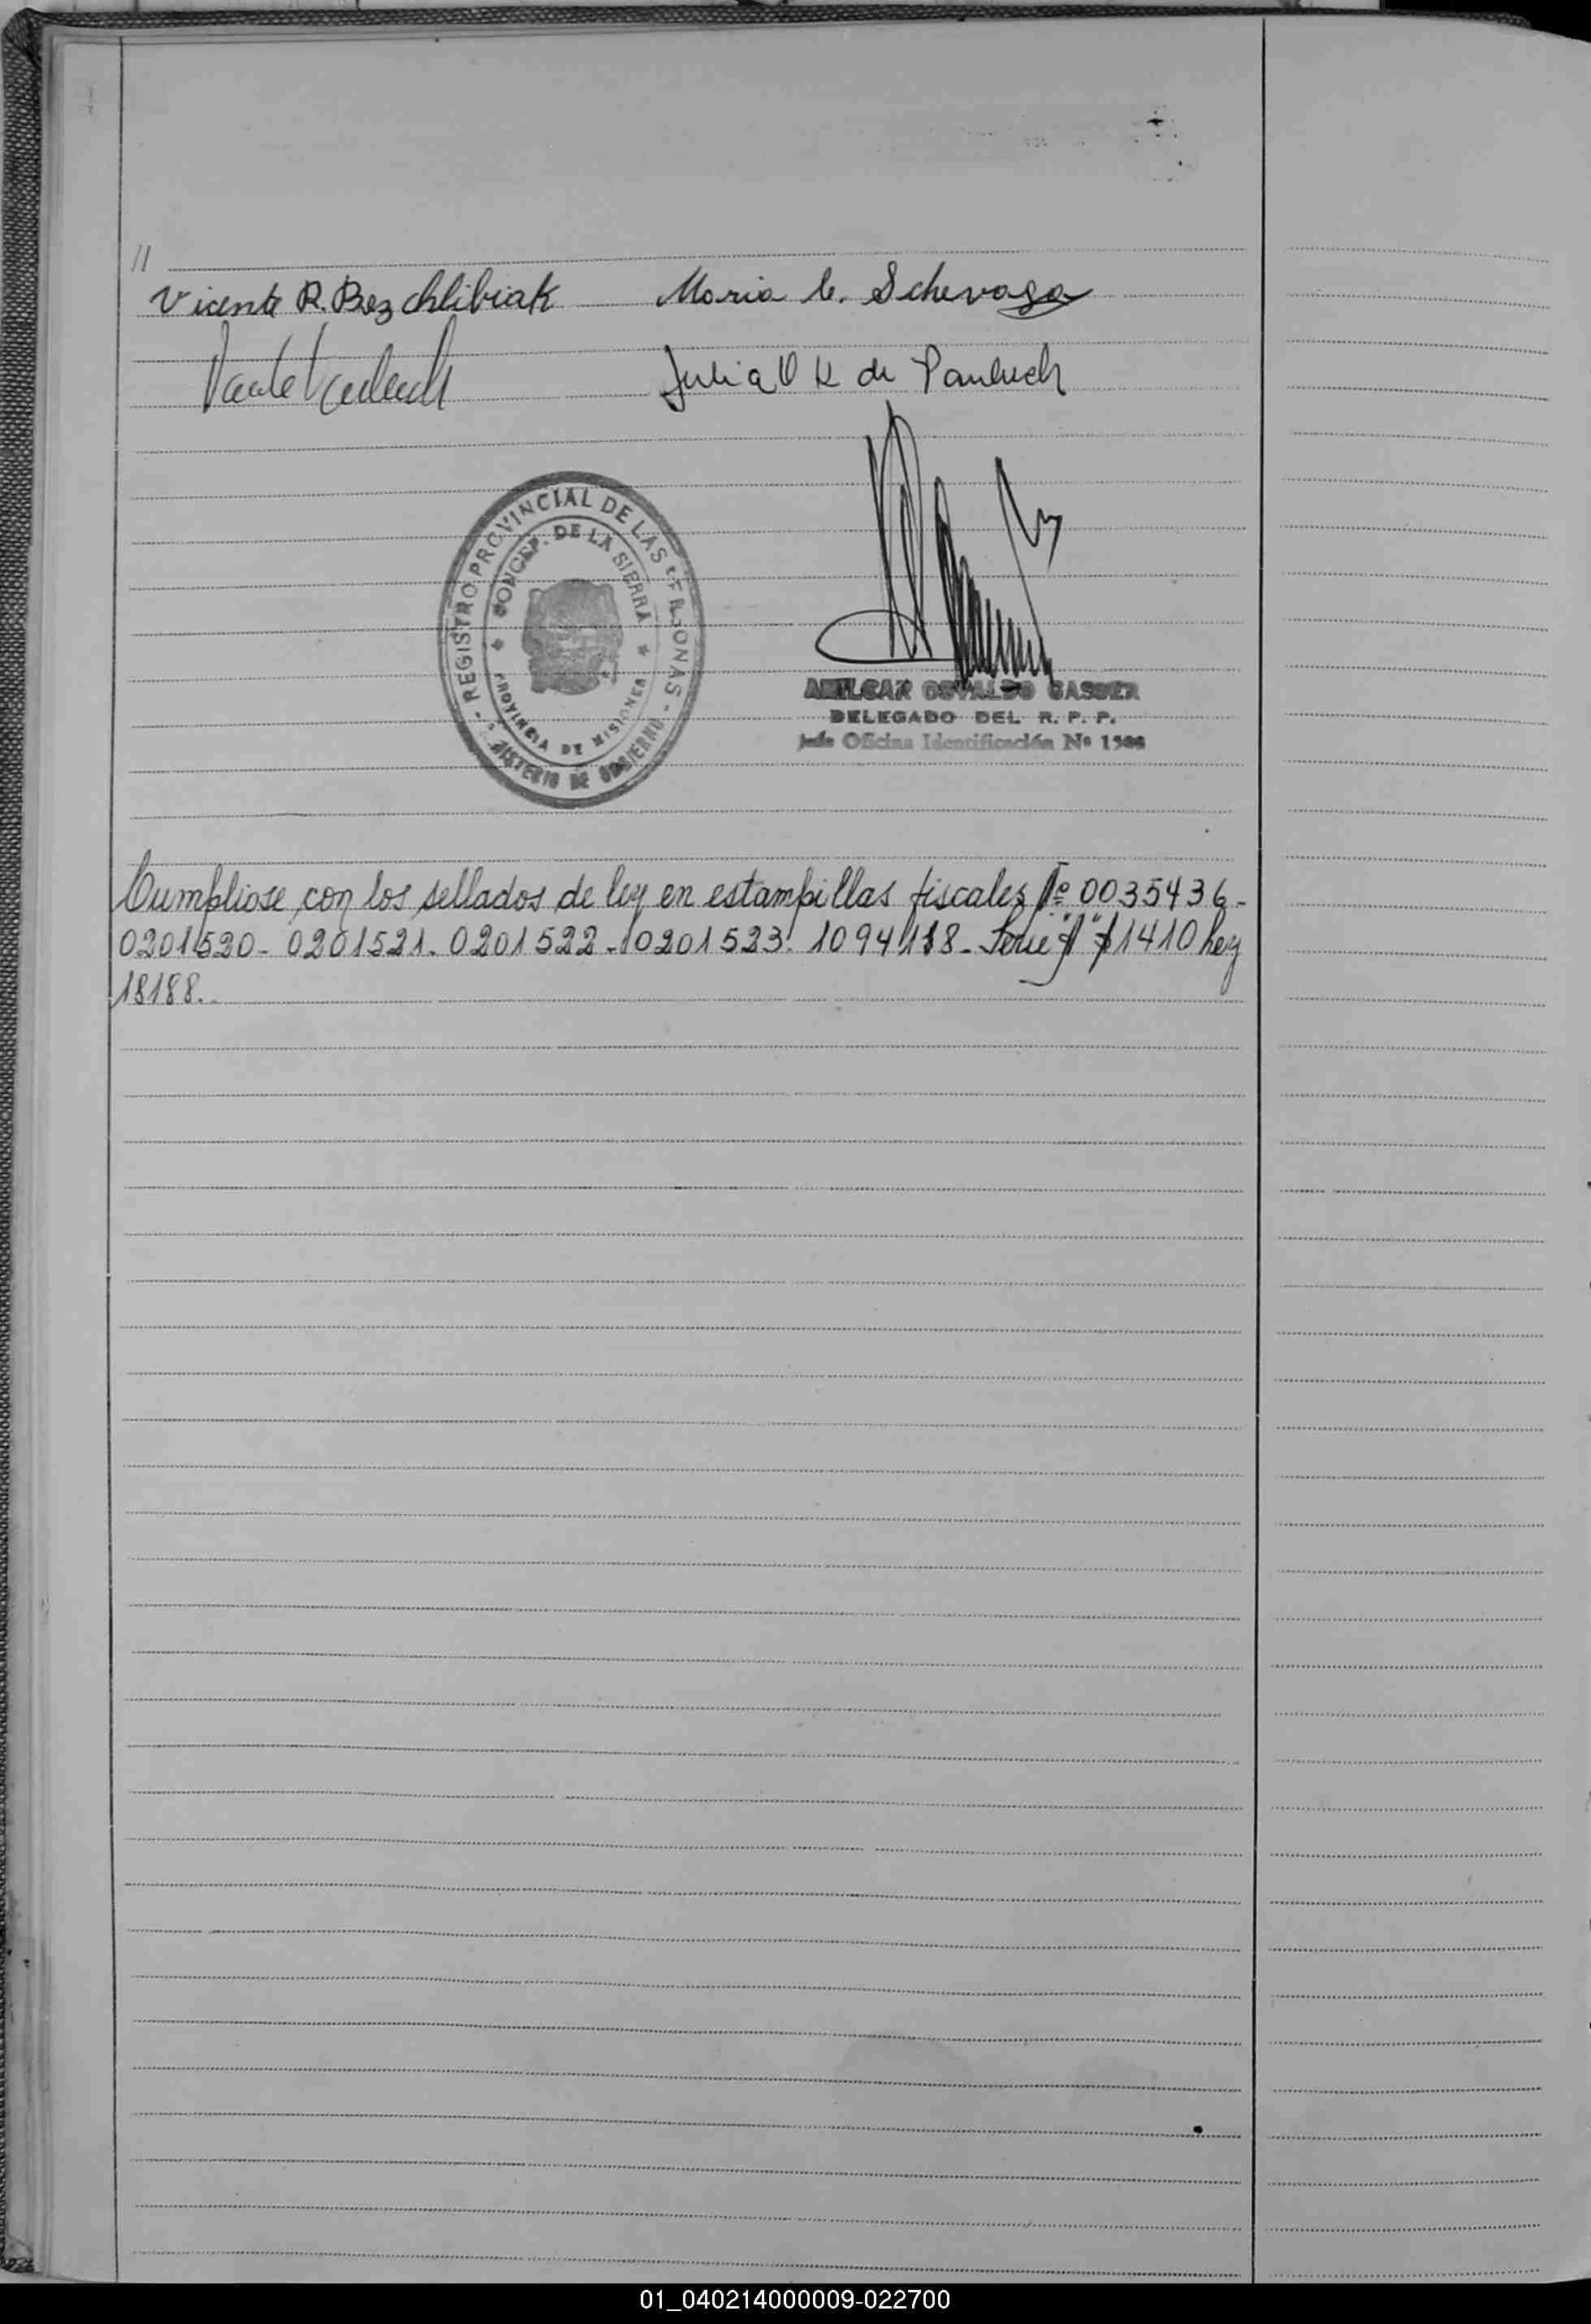 //
Vicente R. Bezchlibiak Maria C. Schevaga
Julia O K de Pauluch
- REGISTRO PROVINCIAL DE LAS PERSONAS -
CONCEP. DE LA SIERRA
PROVINCIA DE MISIONES
MINISTERIO DE GOBIERNO
AMILCAR OSVALDO GASNER
DELEGADO DEL R. P. P.
Jefe Oficina Identificación Nº
Cumpliose con los sellados de ley en estampillas fiscales Nº 0035436-
0201520- 0201521. 0201522- 0201523. 1094118- Serie "A" $1410 ley
18188.
01_040214000009-022700